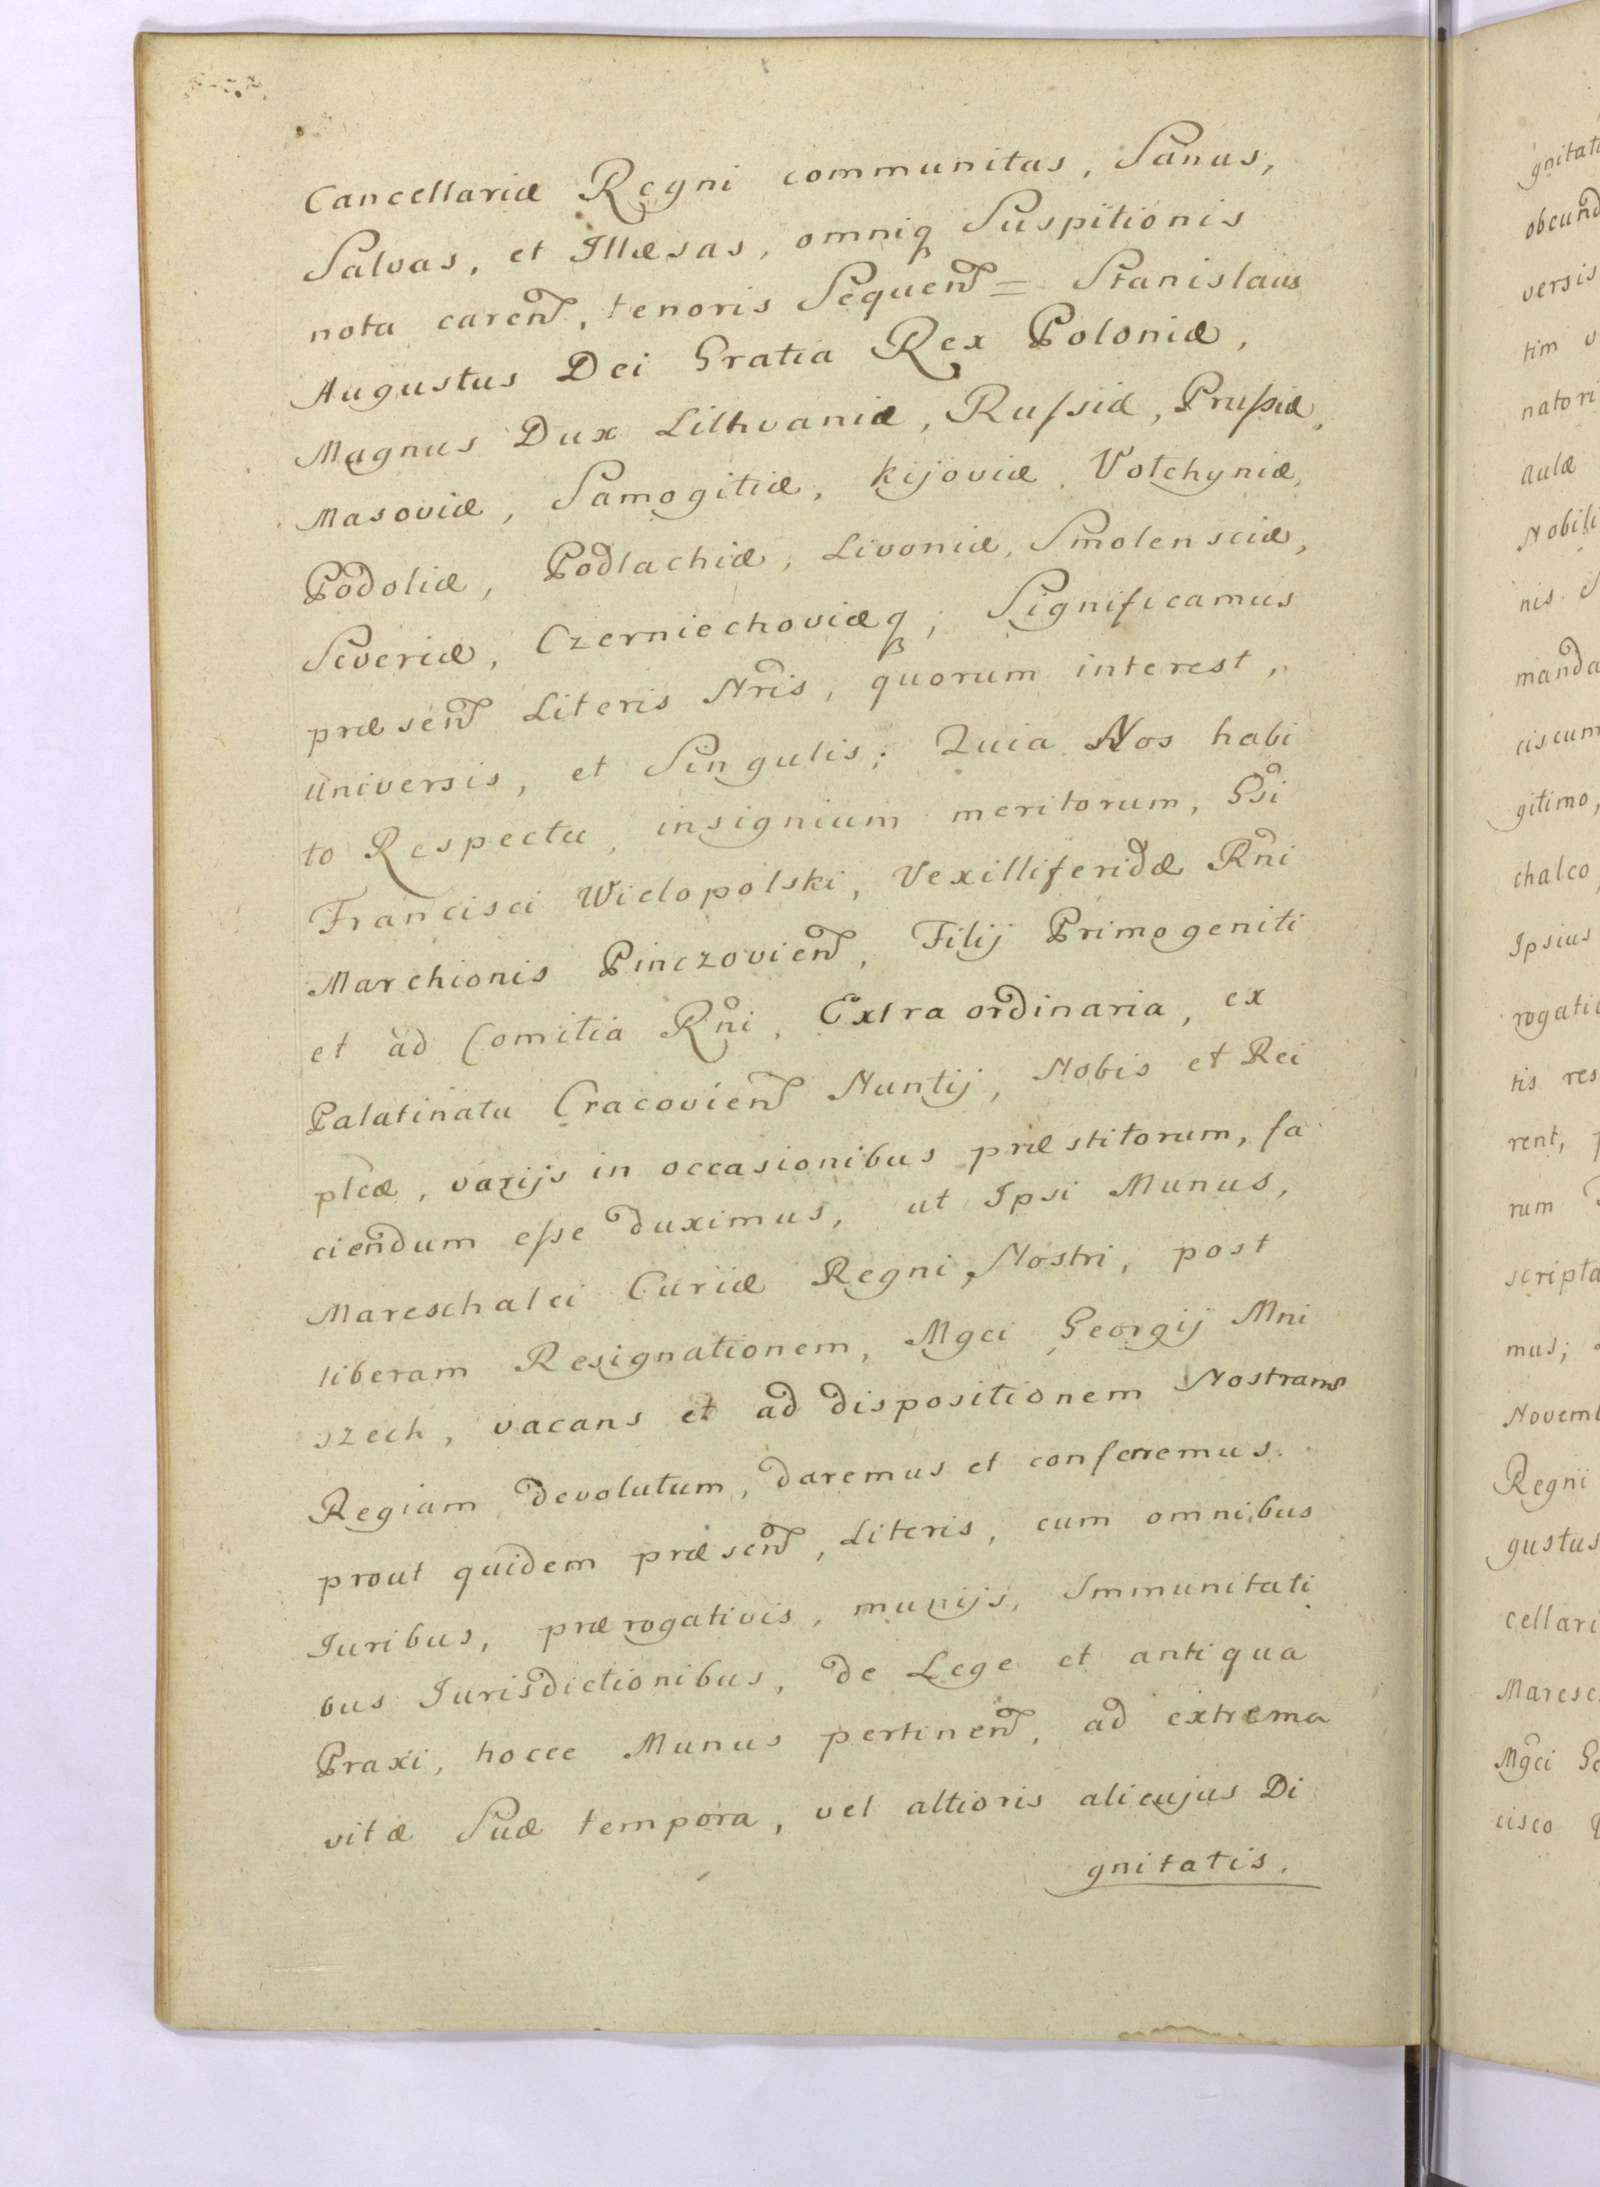 Cancellariæ Regni communitas, Sanas,
Salvas, et Illæsas, omniq Suspitionis
nota caren, tenoris Sequen = Stanislaus
Augustus Dei Gratia Rex Poloniæ,
Magnus Dux Lithvaniæ, Russiæ, Prussiæ,
Masoviæ, Samogitiæ, Kijoviæ, Volchyniæ,
Podoliæ, Podlachiæ, Livoniæ, Smolensciæ,
Severiæ, Czerniechoviæq; Significamus
præsen Literis Nris, quorum interest,
universis, et Singulis; Quia Nos habi
to Respectu, insignium meritorum, Gsi
Francisci Wielopolski, Vexilliferidæ Rni
Marchionis Pinczovien, Filij Primogeniti
et ad Comitia Rni, Extraordinaria, ex
Palatinatu Cracovien Nuntij, Nobis et Rei
plcæ, varijs in occasionibus præstitorum, fa
ciendum esse duximus, ut Ipsi Munus,
Mareschalci Curiæ Regni Nostri, post
liberam Resignationem, Mgci Georgij Mni
szech, vacans et ad dispositionem Nostram
Regiam devolutum, daremus et conferremus.
prout quidem præsen, Literis, cum omnibus
Iuribus, prærogativis, munijs, Immunitati
bus Iurisdictionibus, de Lege et antiqua
Praxi, hocce Munus pertinen, ad extrema
vitæ Suæ tempora, vel altioris alicujus Di
gnitatis.
obeund
versis
tim
natori
aulæ
Nobili
nis
manda
ciscum
gitimo,
chalco,
Ipsius
rogati
tis res
rent,
rum
scripta
mus;
Novemb
Regni
gustus
cellari
Maresc
Mgci Ge
cisco